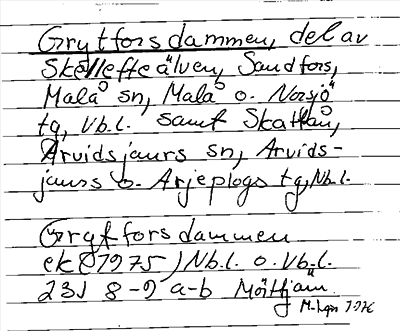 Grytforsdammen, del av
Skellefteälven, Sandfors,
Malå sn, Malå o. Norsjö
tg, Vb.l. samt Skatån,
Arvidsjaurs sn, Arvids-
jaurs o. Arjeplogs tg, Nb.l.
Grytforsdammen
ek (1975) Nb.l. o. Vb.l.
23J 8-9 a-b